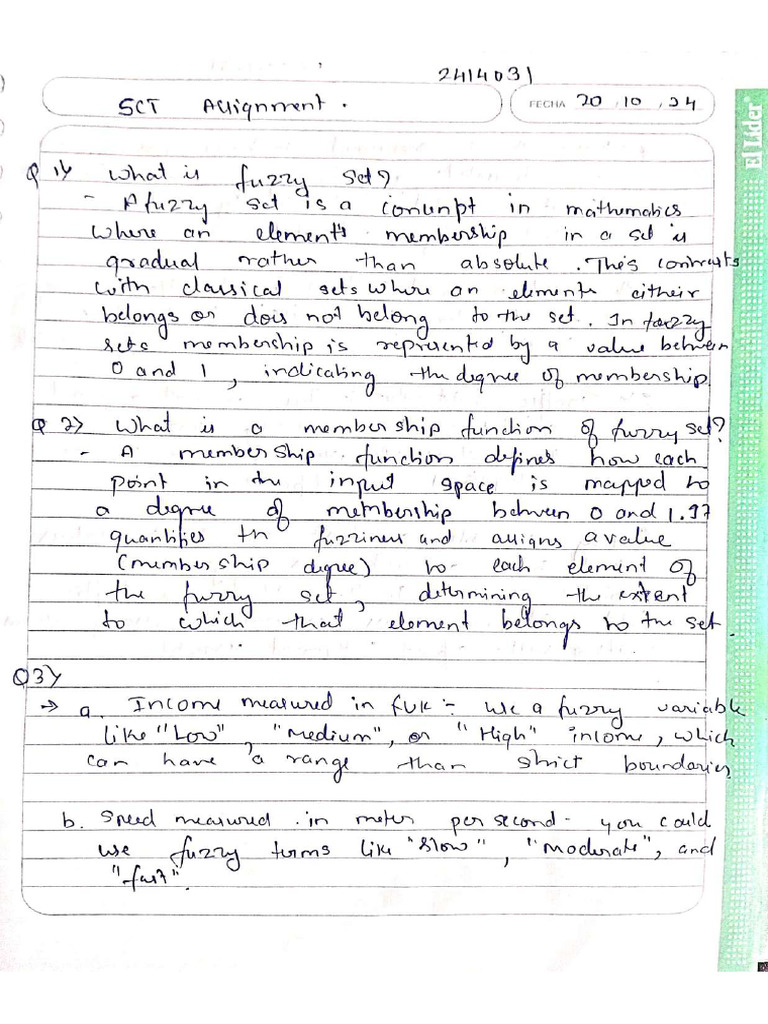 2414031
SCT Assignment.
FECHA 20.10.24
El Líder
Q 1} What is fuzzy set?
- A fuzzy set is a concept in mathematics
where an element's membership in a set is
gradual rather than absolute. This contrasts
with classical sets where an elements eitheir
belongs or dois not belong to the set. In fuzzy
sets membership is represented by a value between
0 and 1, indicating the degree of membership.
Q 2} What is a membership function of fuzzy set?
- A membership function defines how each
point in the input space is mapped to
a degree of membership between 0 and 1. It
quantifies the fuzziness and assigns a value
(membership degree) to each element of
the fuzzy set, determining the extent
to which that element belongs to the set.
Q3}
→ a. Income measured in :- use a fuzzy variable
like "Low", "Medium", or "High" income, which
can have a range than strict boundaries
b. Speed measured in meter per second - you could
use fuzzy terms like "Slow", "Moderate", and
"fast".